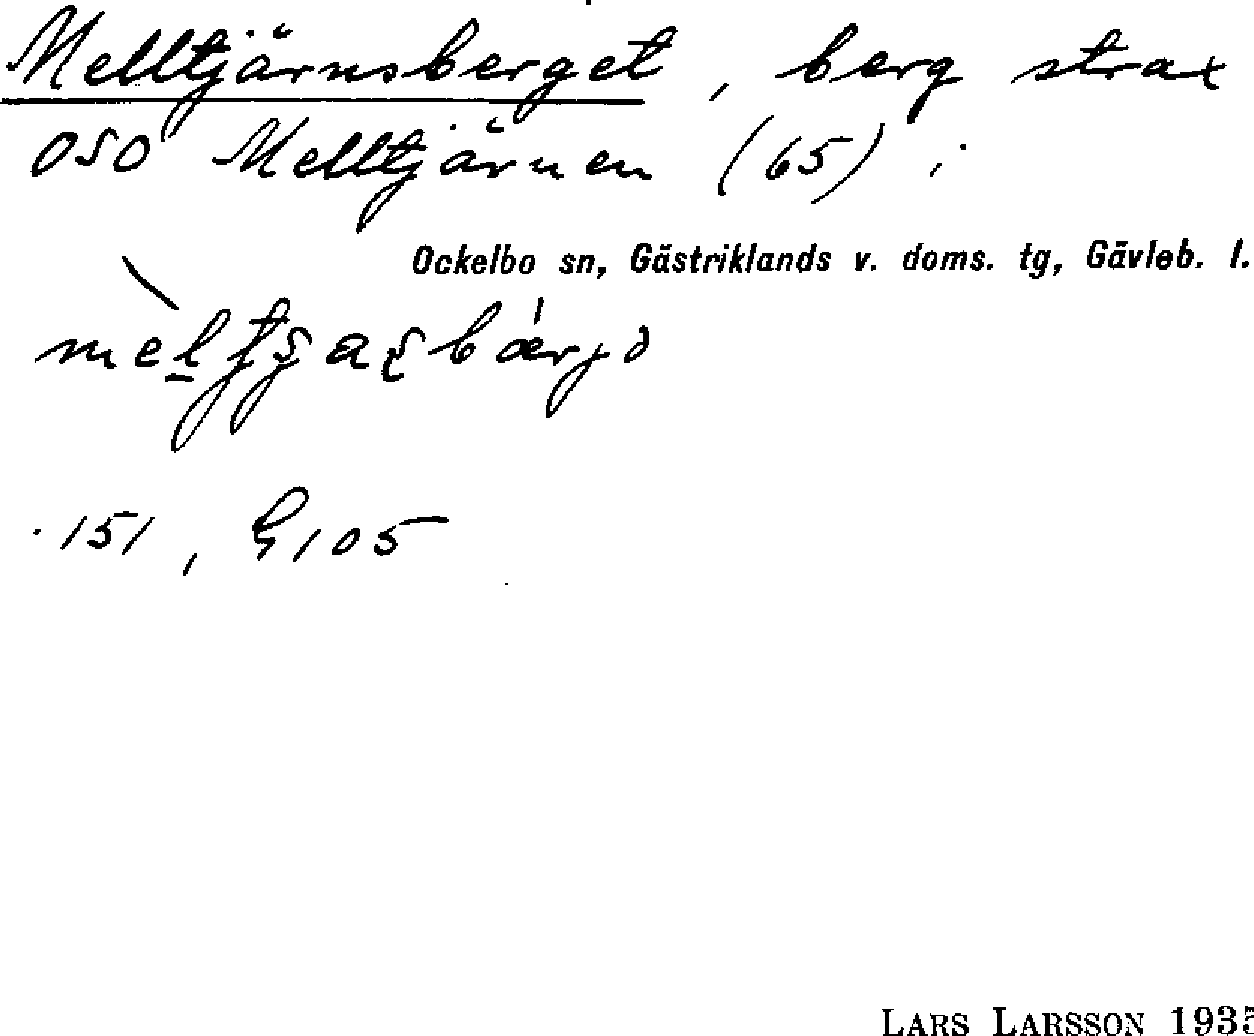 Melltjärnsberget, berg strax
OSO Melltjärnen (65) i
Ockelbo sn, Gästriklands v. doms. tg, Gävleb. l.
151, G 105
LARS LARSSON 1935